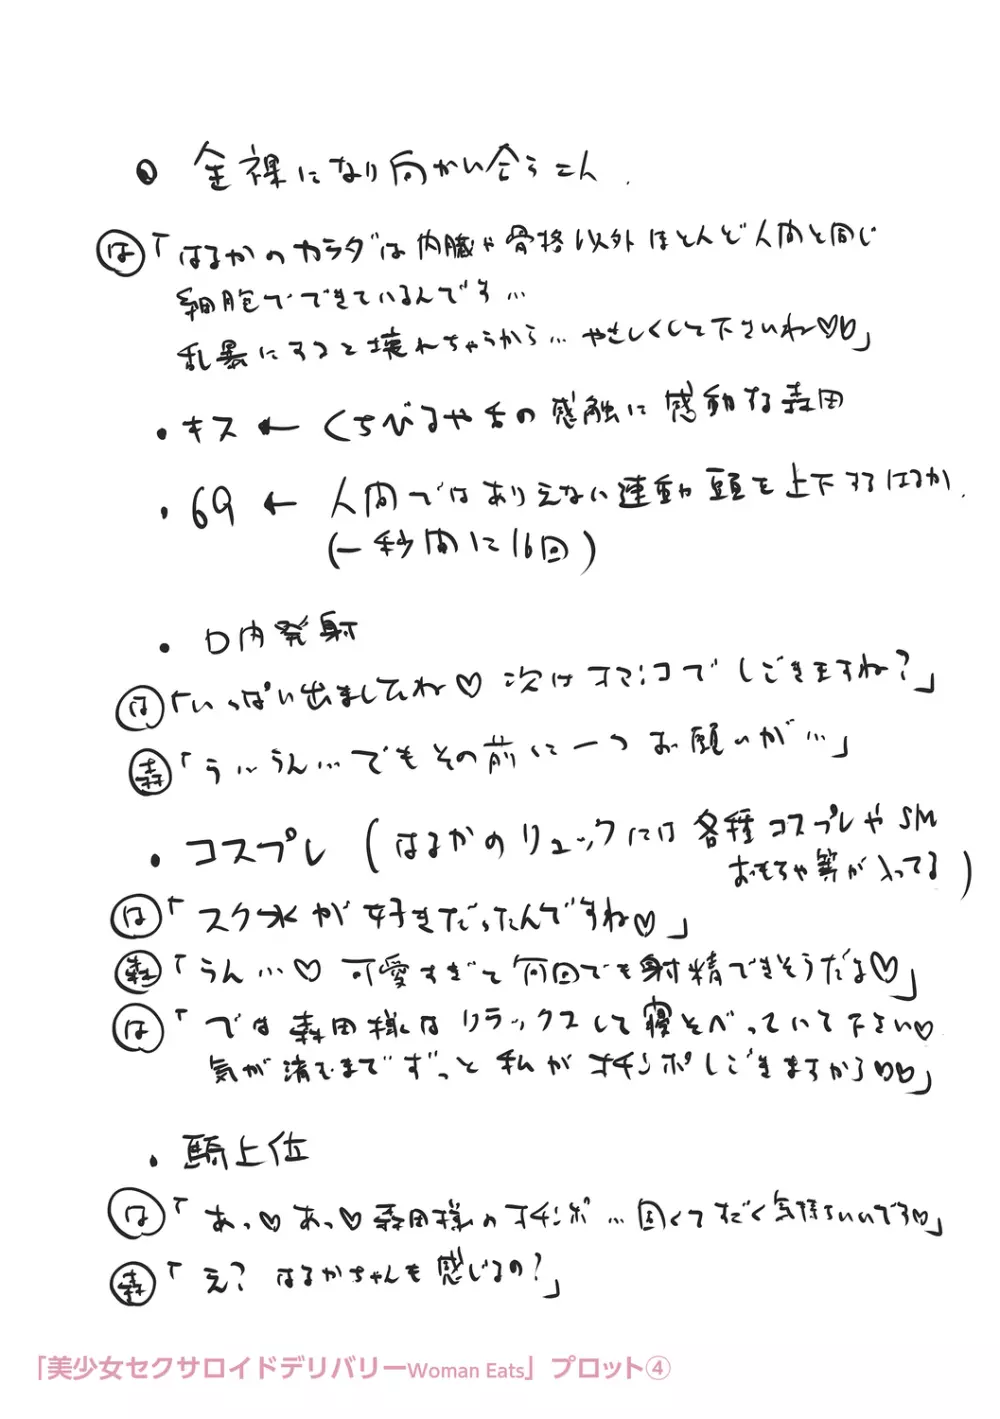 ● 全裸になり向かい合う二人.
は「はるかのカラダは内臓や骨格以外ほとんど人間と同じ
細胞でできているんです…
乱暴にすると壊れちゃうから… やさしくして下さいね♡♡」
・キス ← くちびるや舌の感触に感動する森田
・69 ← 人間ではありえない連動 頭を上下するはるか.
(一秒間に16回)
・口内発射
は「いっぱい出ましたね♡ 次はオマンコでしごきますね?」
森「う…うん… でもその前に一つお願いが…」
・コスプレ (はるかのリュックには各種コスプレやSM
おもちゃ等が入ってる)
は「スク水が好きだったんですね♡」
森「うん…♡ 可愛すぎて何回でも射精できそうだよ♡」
は「では森田様はリラックスして寝そべっていて下さい♡
気が済むまでずっと私がオチンポしごきますから♡♡」
・騎上位
は「あっ♡あっ♡森田様のオチンポ…固くてすごく気持ちいいです♡」
森「え? はるかちゃんも感じるの?」
「美少女セクサロイドデリバリーWoman Eats」プロット④